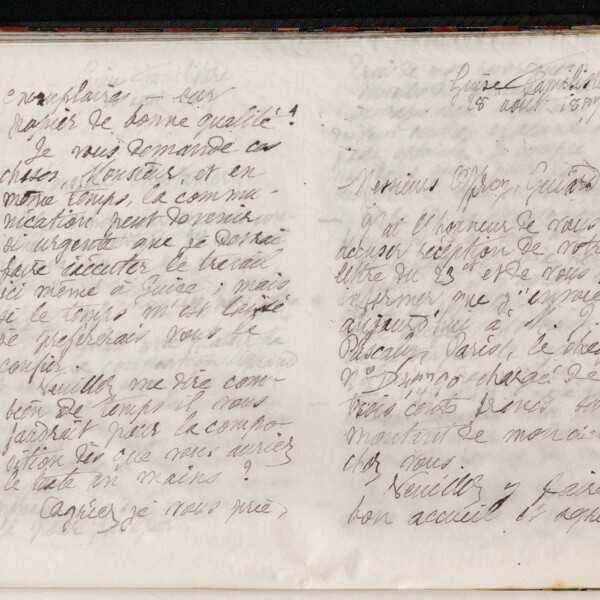 exemplaires – sur
papier de bonne qualité ?
Je vous demande ces
choses, Monsieur, et en
même temps, la commu-
nication peut devenir
si urgente que je devrai
faire exécuter le travail
ici même à Guise ; mais
si le temps m'est laissé
je préférerais vous le
confier.
Veuillez me dire com-
bien de temps il vous
faudrait pour la compo-
sition dès que vous auriez
le texte en mains ?
Agréez, je vous prie,
Guise Familistère
28 août 18
Messieurs
J'ai l'honneur de vous
accuser réception de votre
lettre du 23 et de vous
informer que j'envoie
aujourd'hui à M.
Pascaly, Paris, le chèq
N° chargé de
trois cents francs
montant de mon
chez vous.
Veuillez y faire
bon accueil et